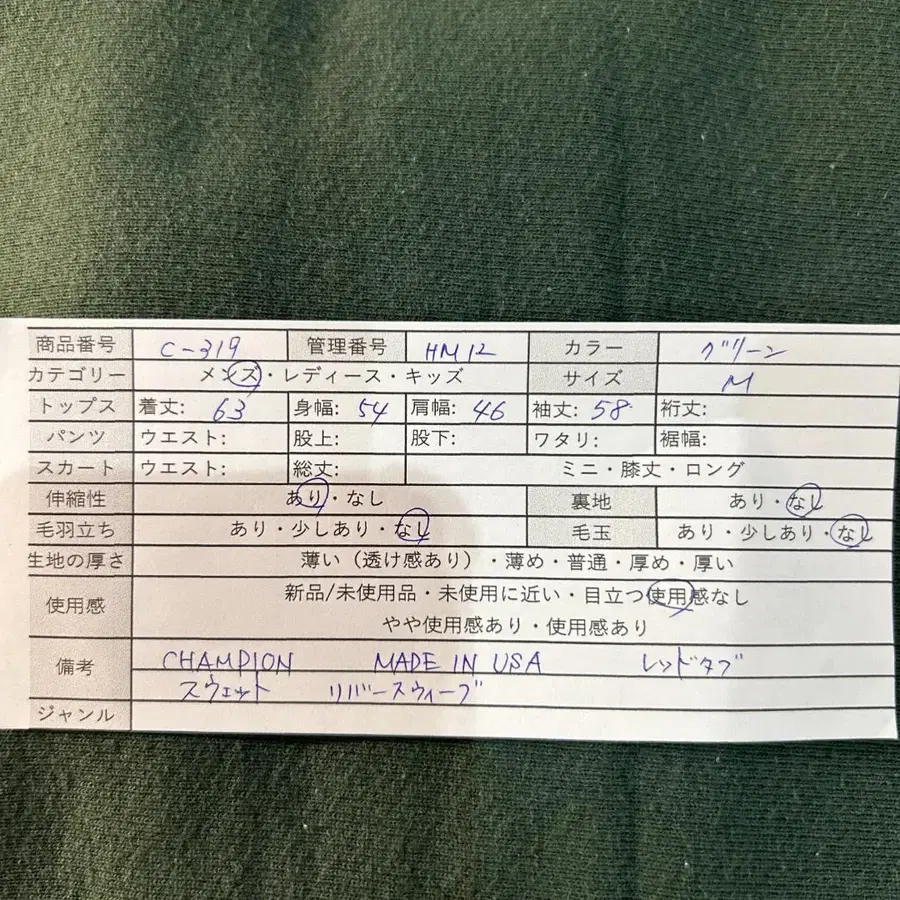 商品番号 C-319 管理番号 HM12 カラー グリーン
カテゴリー メンズ・レディース・キッズ サイズ M
トップス 着丈: 63 身幅: 54 肩幅: 46 袖丈: 58 裄丈:
パンツ ウエスト: 股上: 股下: ワタリ: 裾幅:
スカート ウエスト: 総丈: ミニ・膝丈・ロング
伸縮性 あり・なし 裏地 あり・なし
毛羽立ち あり・少しあり・なし 毛玉 あり・少しあり・なし
生地の厚さ 薄い（透け感あり）・薄め・普通・厚め・厚い
使用感 新品/未使用品・未使用に近い・目立つ使用感なし
やや使用感あり・使用感あり
備考 CHAMPION MADE IN USA レッドタブ
スウェット リバースウィーブ
ジャンル